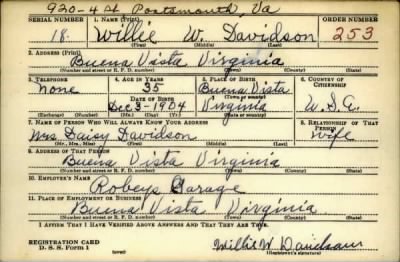 920-4 St Portsmouth, Va
SERIAL NUMBER 1. NAME (Print) ORDER NUMBER
18. Willie W. Davidson 253
(First) (Middle) (Last)
2. ADDRESS (Print)
Buena Vista Virginia
(Number and street or R. F. D. number) (Town) (County) (State)
3. TELEPHONE 4. AGE IN YEARS 5. PLACE OF BIRTH 6. COUNTRY OF CITIZENSHIP
None 35 Buena Vista
DATE OF BIRTH (Town or county)
Dec 3-1904 Virginia U.S.A.
(Exchange) (Number) (Mo.) (Day) (Yr.) (State or country)
7. NAME OF PERSON WHO WILL ALWAYS KNOW YOUR ADDRESS 8. RELATIONSHIP OF THAT PERSON
Mrs Daisy Davidson Wife
(Mr., Mrs., Miss) (First) (Middle) (Last)
9. ADDRESS OF THAT PERSON
Buena Vista Virginia
(Number and street or R. F. D. number) (Town) (County) (State)
10. EMPLOYER'S NAME
Robeys Garage
11. PLACE OF EMPLOYMENT OR BUSINESS
Buena Vista Virginia
(Number and street or R. F. D. number) (Town) (County) (State)
I AFFIRM THAT I HAVE VERIFIED ABOVE ANSWERS AND THAT THEY ARE TRUE.
REGISTRATION CARD
D. S. S. Form 1 (over) Willie W. Davidson
(Registrant's signature)